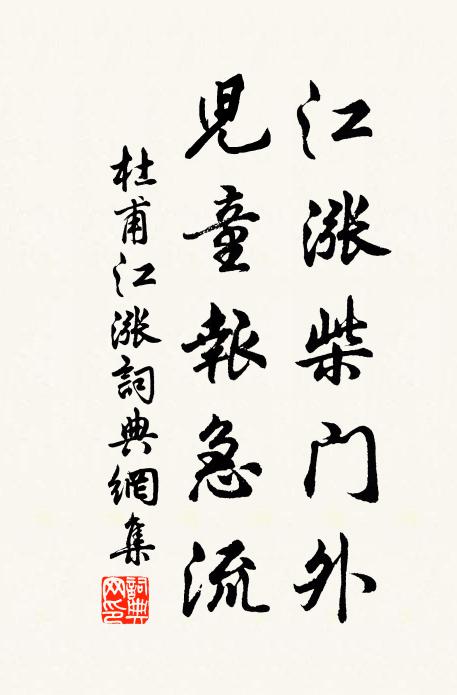 江漲柴门外
兒童報急流
杜甫江漲詞典網集
詞典网印